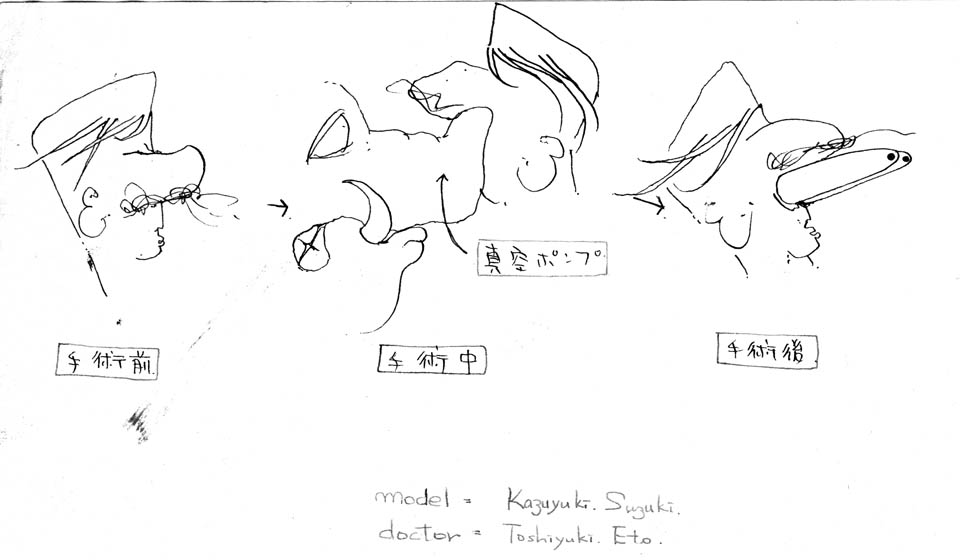 真空ポンプ
手術前
手術中
手術後
model = Kazuyuki. Suzuki.
doctor = Toshiyuki. Eto.